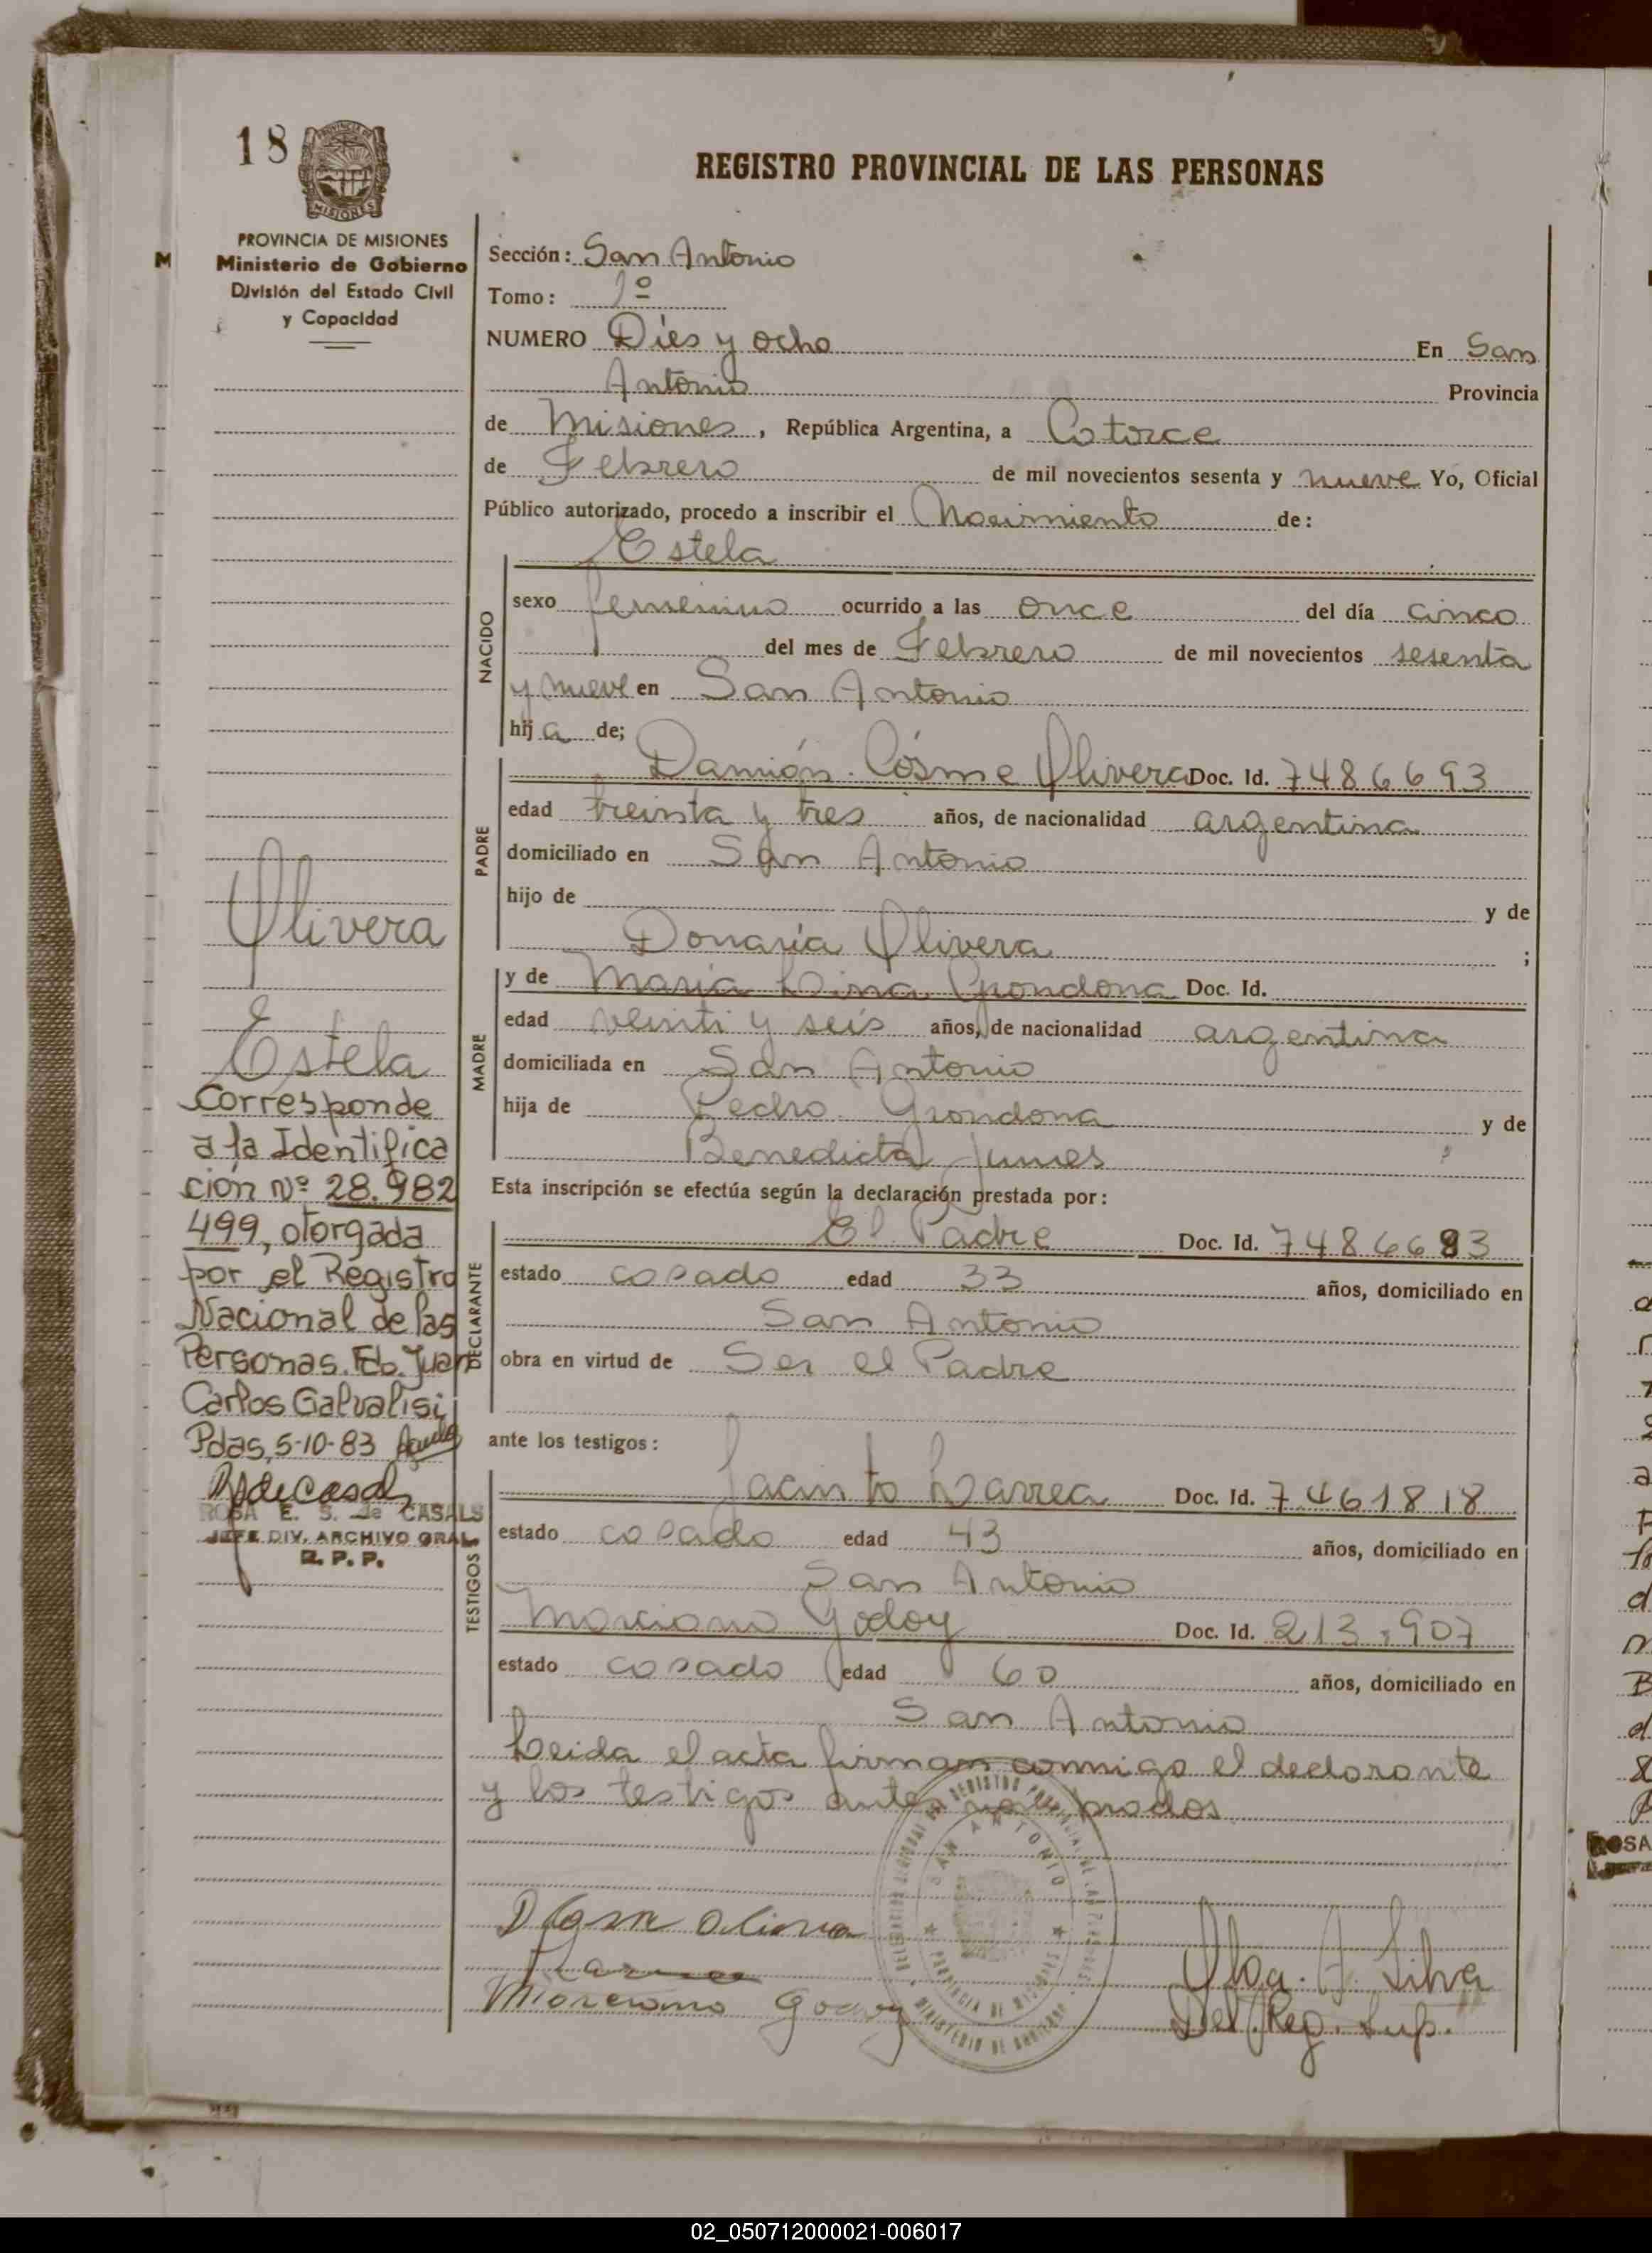 18
PROVINCIA DE MISIONES
Ministerio de Gobierno
División del Estado Civil
y Capacidad
REGISTRO PROVINCIAL DE LAS PERSONAS
Sección: San Antonio
Tomo: 1º
NUMERO Dies y ocho En San
Antonio Provincia
de Misiones, República Argentina, a Catorce
de Febrero de mil novecientos sesenta y nueve Yo, Oficial
Público autorizado, procedo a inscribir el Nacimiento de:
Estela
NACIDO
sexo femenino ocurrido a las once del día cinco
del mes de Febrero de mil novecientos sesenta
y nueve en San Antonio
hij a de;
PADRE
Damián Cósme Olivera Doc. Id. 7486693
edad treinta y tres años, de nacionalidad argentina
domiciliado en San Antonio
hijo de y de
Donaria Olivera ;
MADRE
y de Maria Lina Grondona Doc. Id.
edad veinti y seis años, de nacionalidad argentina
domiciliada en San Antonio
hija de Pedro Grondona y de
Benedicta Junes
Esta inscripción se efectúa según la declaración prestada por:
DECLARANTE
El Padre Doc. Id. 7486693
estado casado edad 33 años, domiciliado en
San Antonio
obra en virtud de Ser el Padre
ante los testigos:
TESTIGOS
Jacinto Larrea Doc. Id. 7.461818
estado casado edad 43 años, domiciliado en
San Antonio
Marciano Godoy Doc. Id. 213.907
estado casado edad 60 años, domiciliado en
San Antonio
Leida el acta firman conmigo el declarante
y los testigos antes nombrados
Olivera
Estela
Corresponde
a la Identifica
ción Nº 28.982
499, otorgada
por el Registro
Nacional de las
Personas. Fdo. Juan
Carlos Galvalisi
Pdas, 5-10-83
ROSA E. S. de CASALS
JEFE DIV. ARCHIVO GRAL.
R. P. P.
SAN ANTONIO
PROVINCIA DE MISIONES
MINISTERIO DE GOBIERNO
Marciano Godoy
Olga. A. Silva
Del. Reg. Sup.
02_050712000021-006017